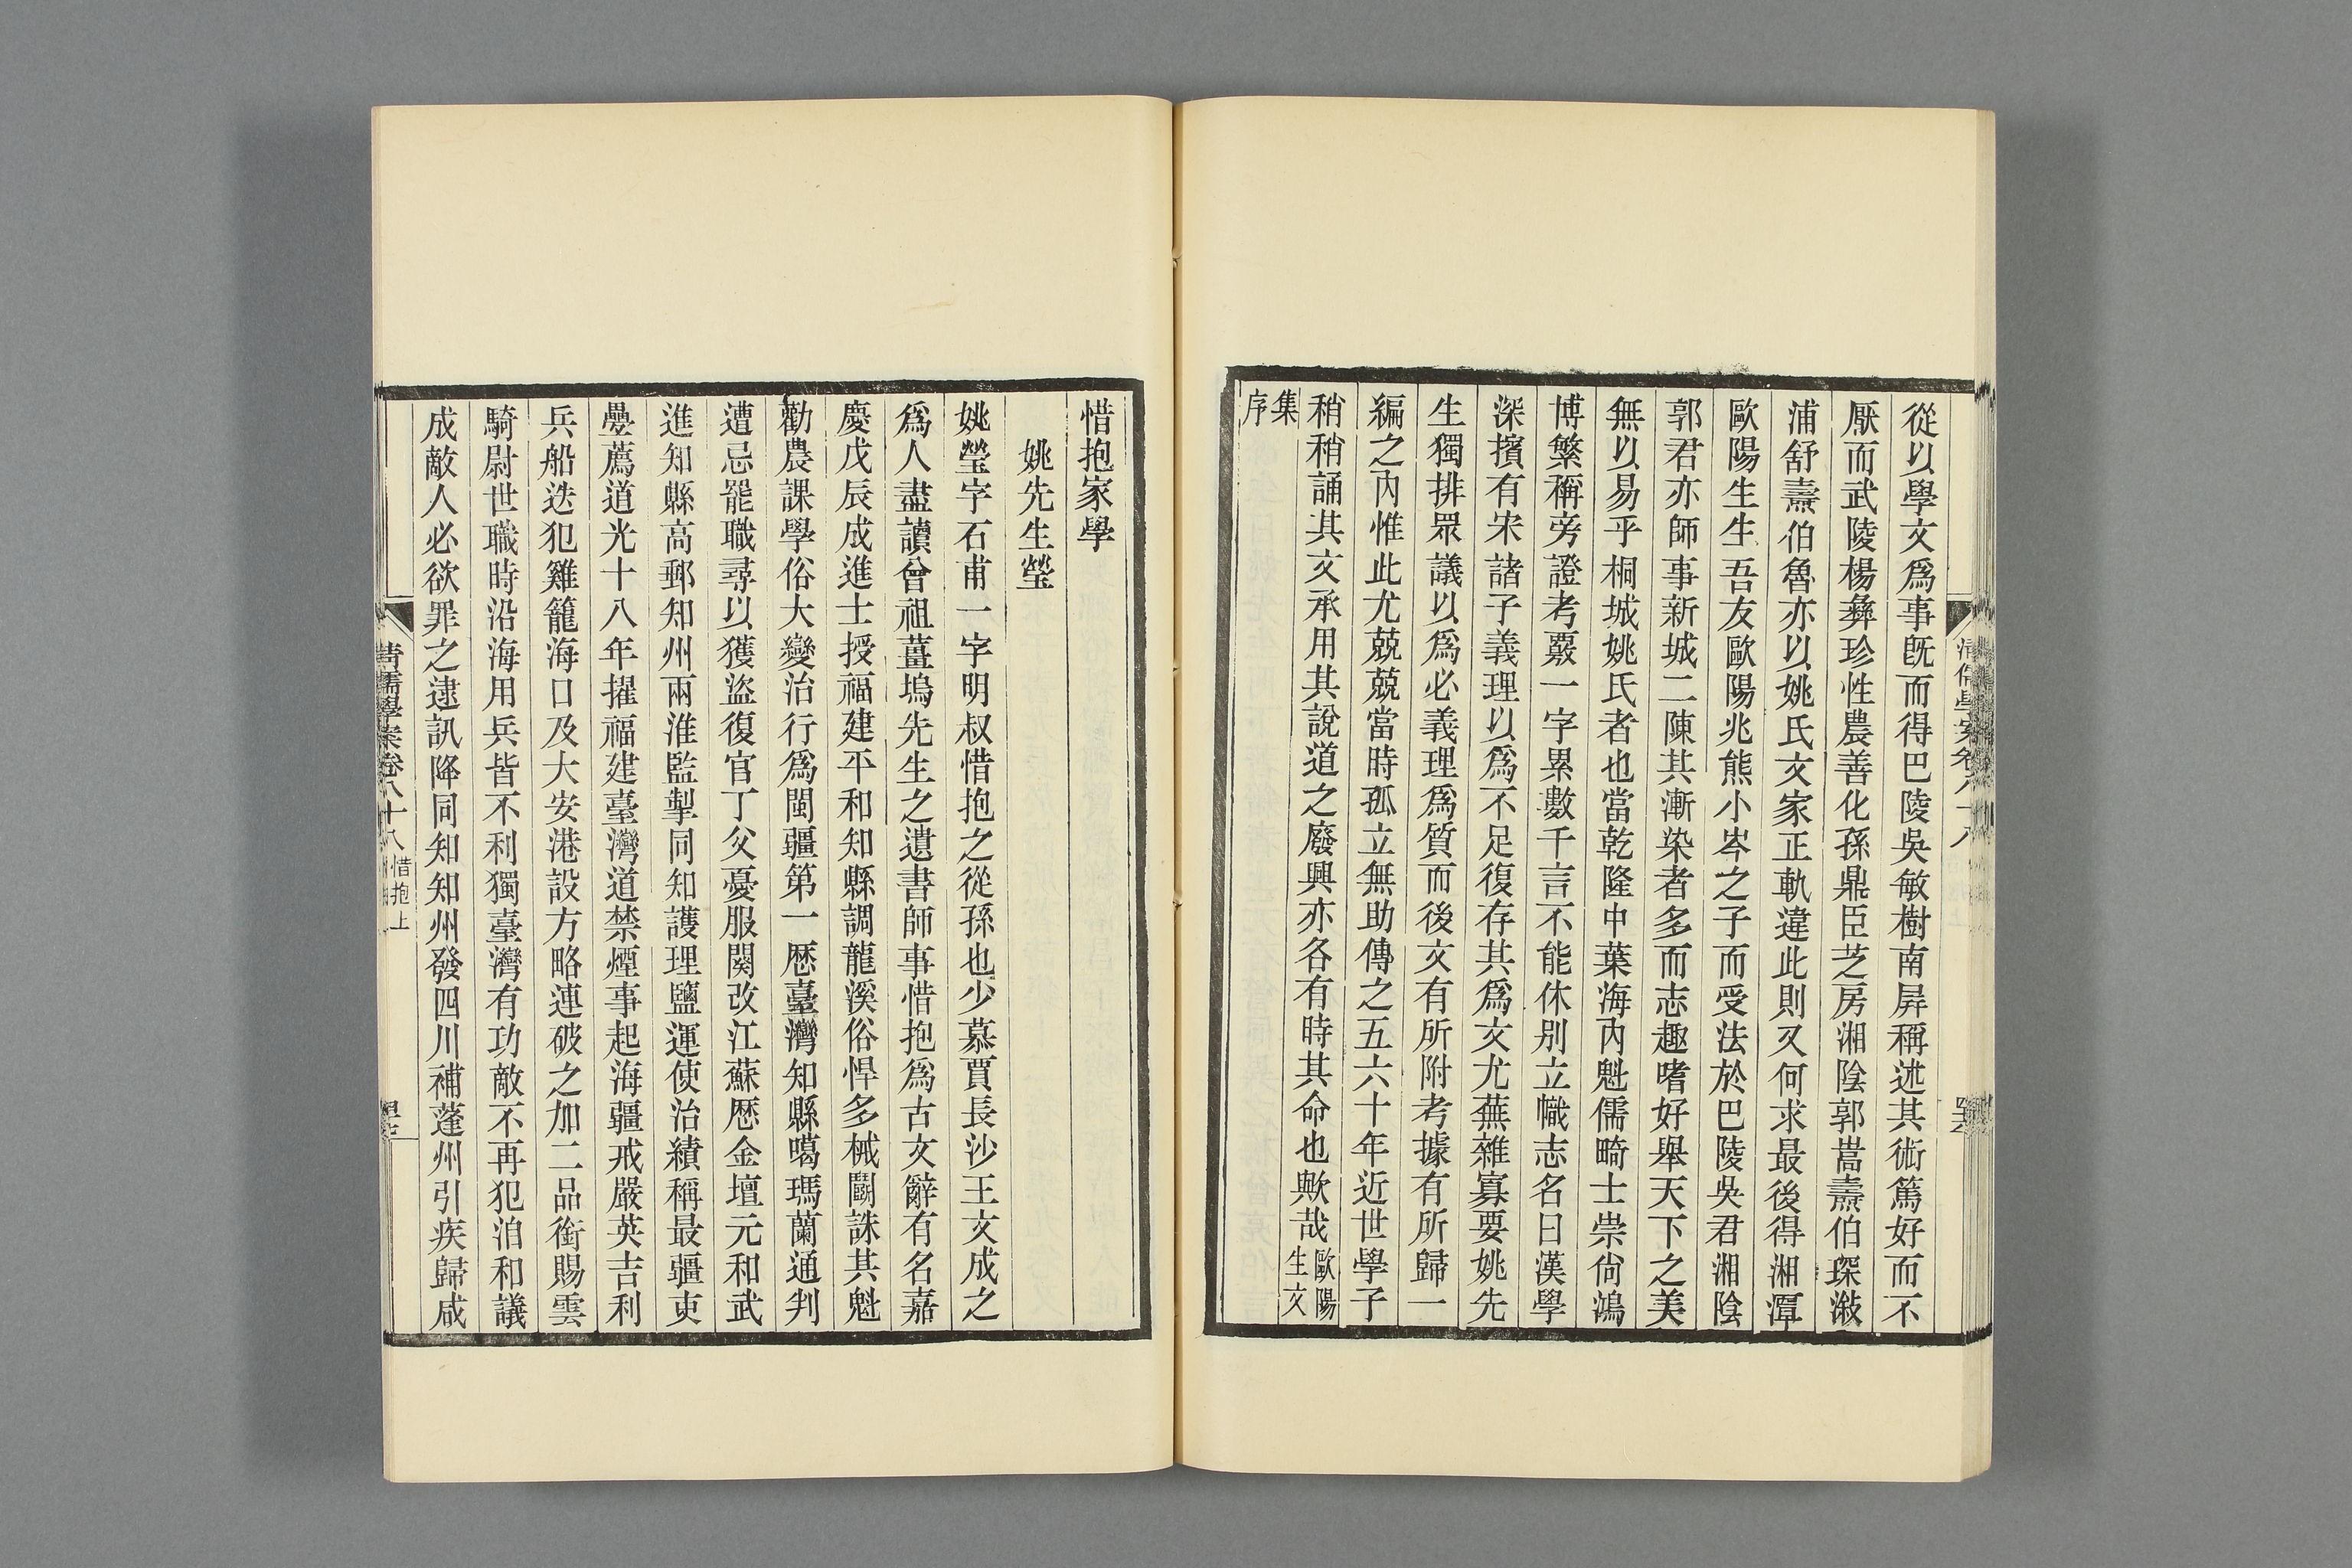 從以學文爲事旣而得巴陵吳敏樹南屛稱述其術篤好而不
厭而武陵楊彝珍性農善化孫鼎臣芝房湘陰郭嵩燾伯琛漵
浦舒燾伯魯亦以姚氏文家正軌違此則又何求最後得湘潭
歐陽生生吾友歐陽兆熊小岑之子而受法於巴陵吳君湘陰
郭君亦師事新城二陳其漸染者多而志趣嗜好舉天下之美
無以易乎桐城姚氏者也當乾隆中葉海內魁儒畸士崇尙鴻
博繁稱旁證考覈一字累數千言不能休别立幟志名曰漢學
深擯有宋諸子義理以爲不足復存其爲文尤蕪雜寡要姚先
生獨排眾議以爲必義理爲質而後文有所附考據有所歸一
編之內惟此尤兢兢當時孤立無助傳之五六十年近世學子
稍稍誦其文承用其說道之廢興亦各有時其命也歟哉歐陽生文
集序
清儒學案卷八十八
惜抱家學
姚先生瑩
姚瑩字石甫一字明叔惜抱之從孫也少慕賈長沙王文成之
爲人盡讀曾祖薑塢先生之遺書師事惜抱爲古文辭有名嘉
慶戊辰成進士授福建平和知縣調龍溪俗悍多械鬭誅其魁
勸農課學俗大變治行爲閩疆第一歷臺灣知縣噶瑪蘭通判
遭忌罷職尋以獲盜復官丁父憂服闋改江蘇歷金壇元和武
進知縣高郵知州兩淮監掣同知護理鹽運使治績稱最疆吏
曡薦道光十八年擢福建臺灣道禁煙事起海疆戒嚴英吉利
兵船迭犯雞籠海口及大安港設方略連破之加二品銜賜雲
騎尉世職時沿海用兵皆不利獨臺灣有功敵不再犯洎和議
成敵人必欲罪之逮訊降同知知州發四川補蓬州引疾歸咸
清儒學案卷八十八 惜抱上